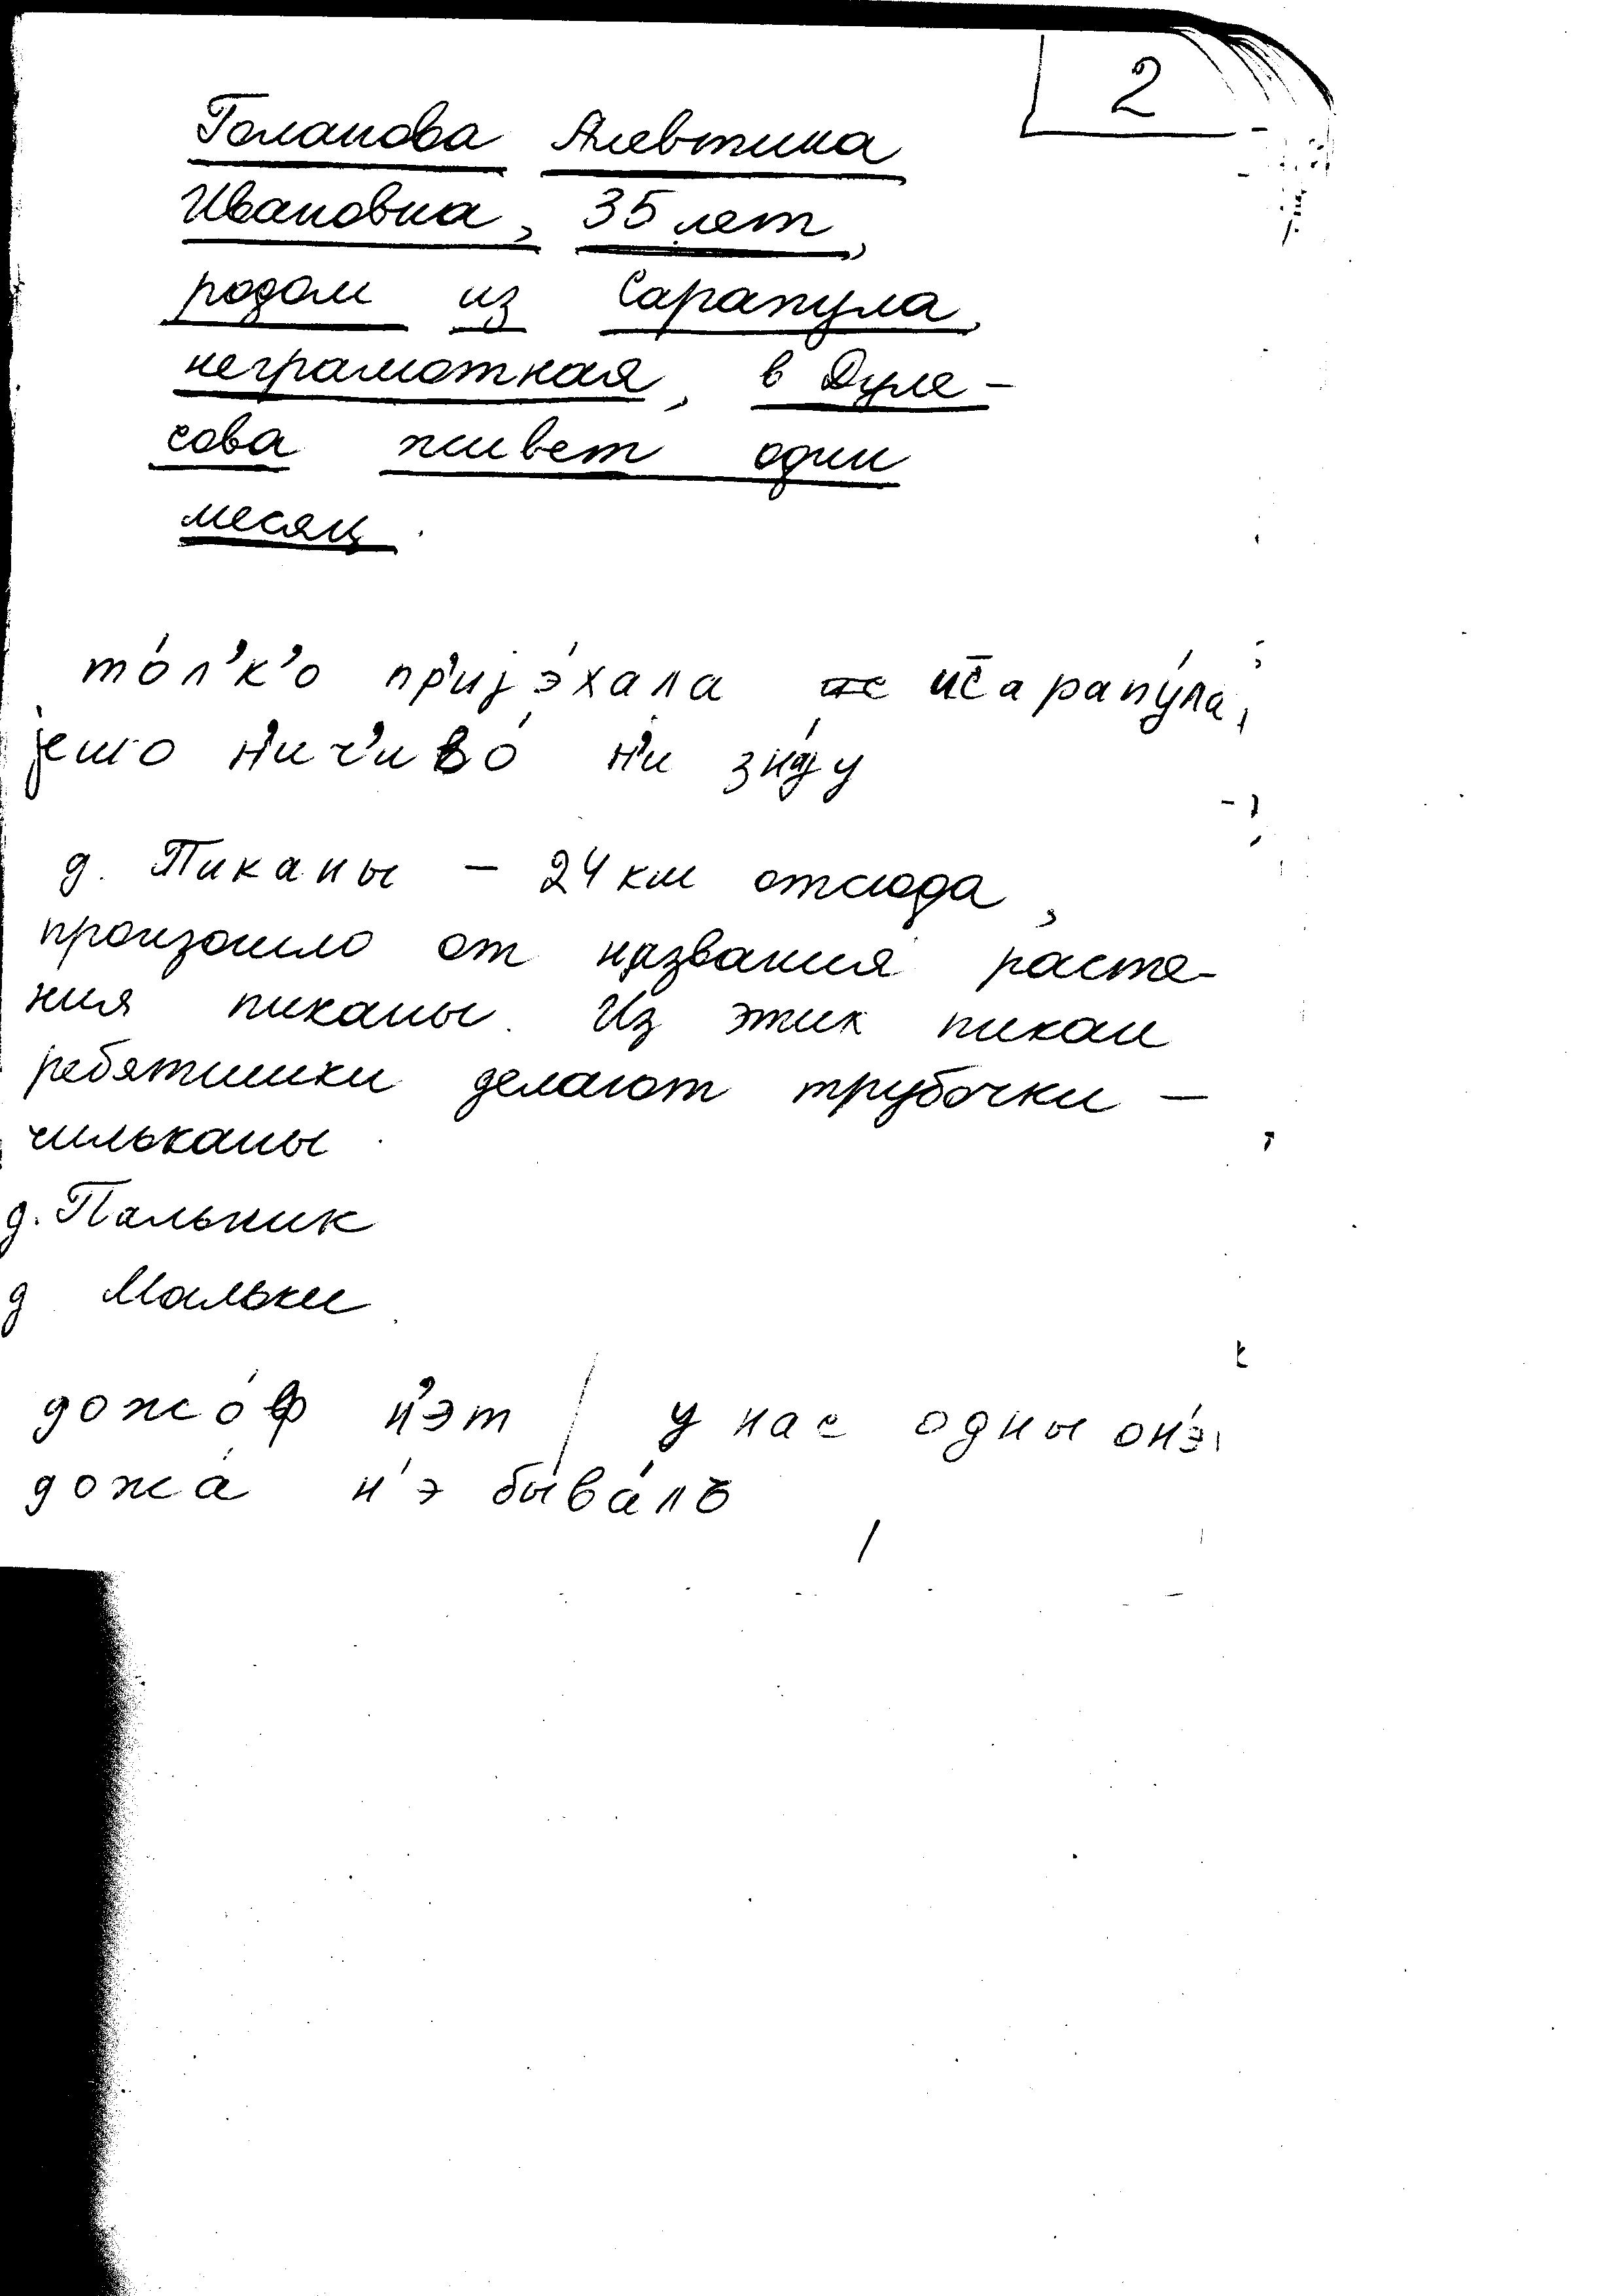 2
Голанова Алевтина
Ивановна, 35 лет,
родом из Сарапула,
неграмотная, в Дуле-
сова живет один
месяц.
то́л’к’о пр’ијэ́хала ис̄арапу́ла,
јешо н’ич’иво́ н’и зна́јy
д. Пиканы – 24 км отсюда,
произошло от названия расте-
ния пиканы. Из этих пикан
ребятишки делают трубочки –
чильканы.
д. Пальник
д Мальки.
дожо́ф н’эт / у нас одны он’э́
дожа́ н’э быва́лъ